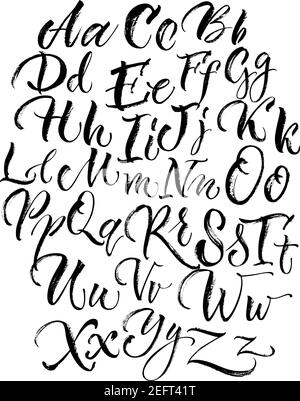 Aa Cc Bb
Dd Ee Ff Gg
Hh Ii Jj Kk
Ll Mm Nn Oo
Pp Qq Rr Ss Tt
Uu Vv Ww
Xx Yy Zz
2EFT41T